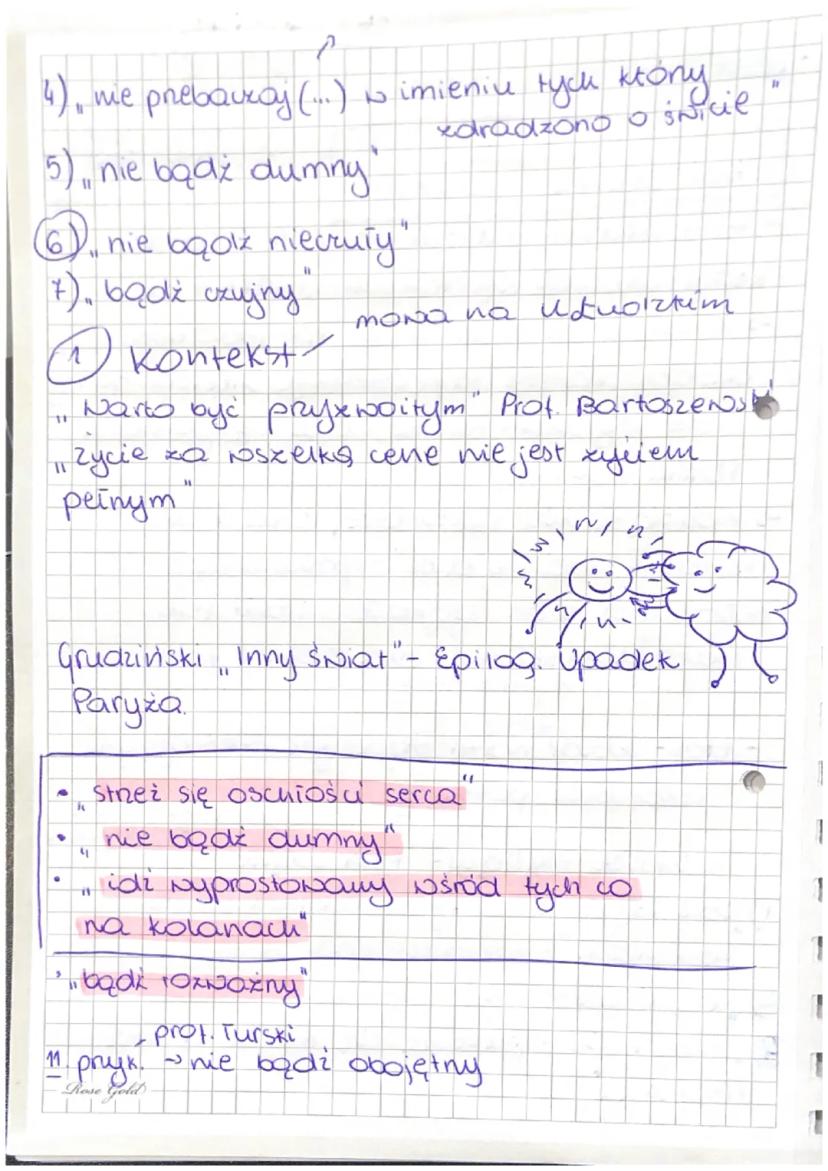 4) „nie przebaczaj (...) w imieniu tych który
zdradzono o świcie"
5) „nie bądź dumny"
6) „nie bądź nieczuły"
7) „bądź czujny"
mowa na
1 Kontekst
„Warto być przyzwoitym" Prof. Bartoszewski
„życie za wszelką cene nie jest życiem
pełnym"
Grudziński „Inny Świat" - Epilog. Upadek
Paryża.
• „strzeż się oschłości serca"
• „nie bądź dumny"
• „idź wyprostowany wśród tych co
na kolanach"
• „bądź rozważny"
prof. Turski
11. przyk. → nie bądź obojętny
Rose Gold